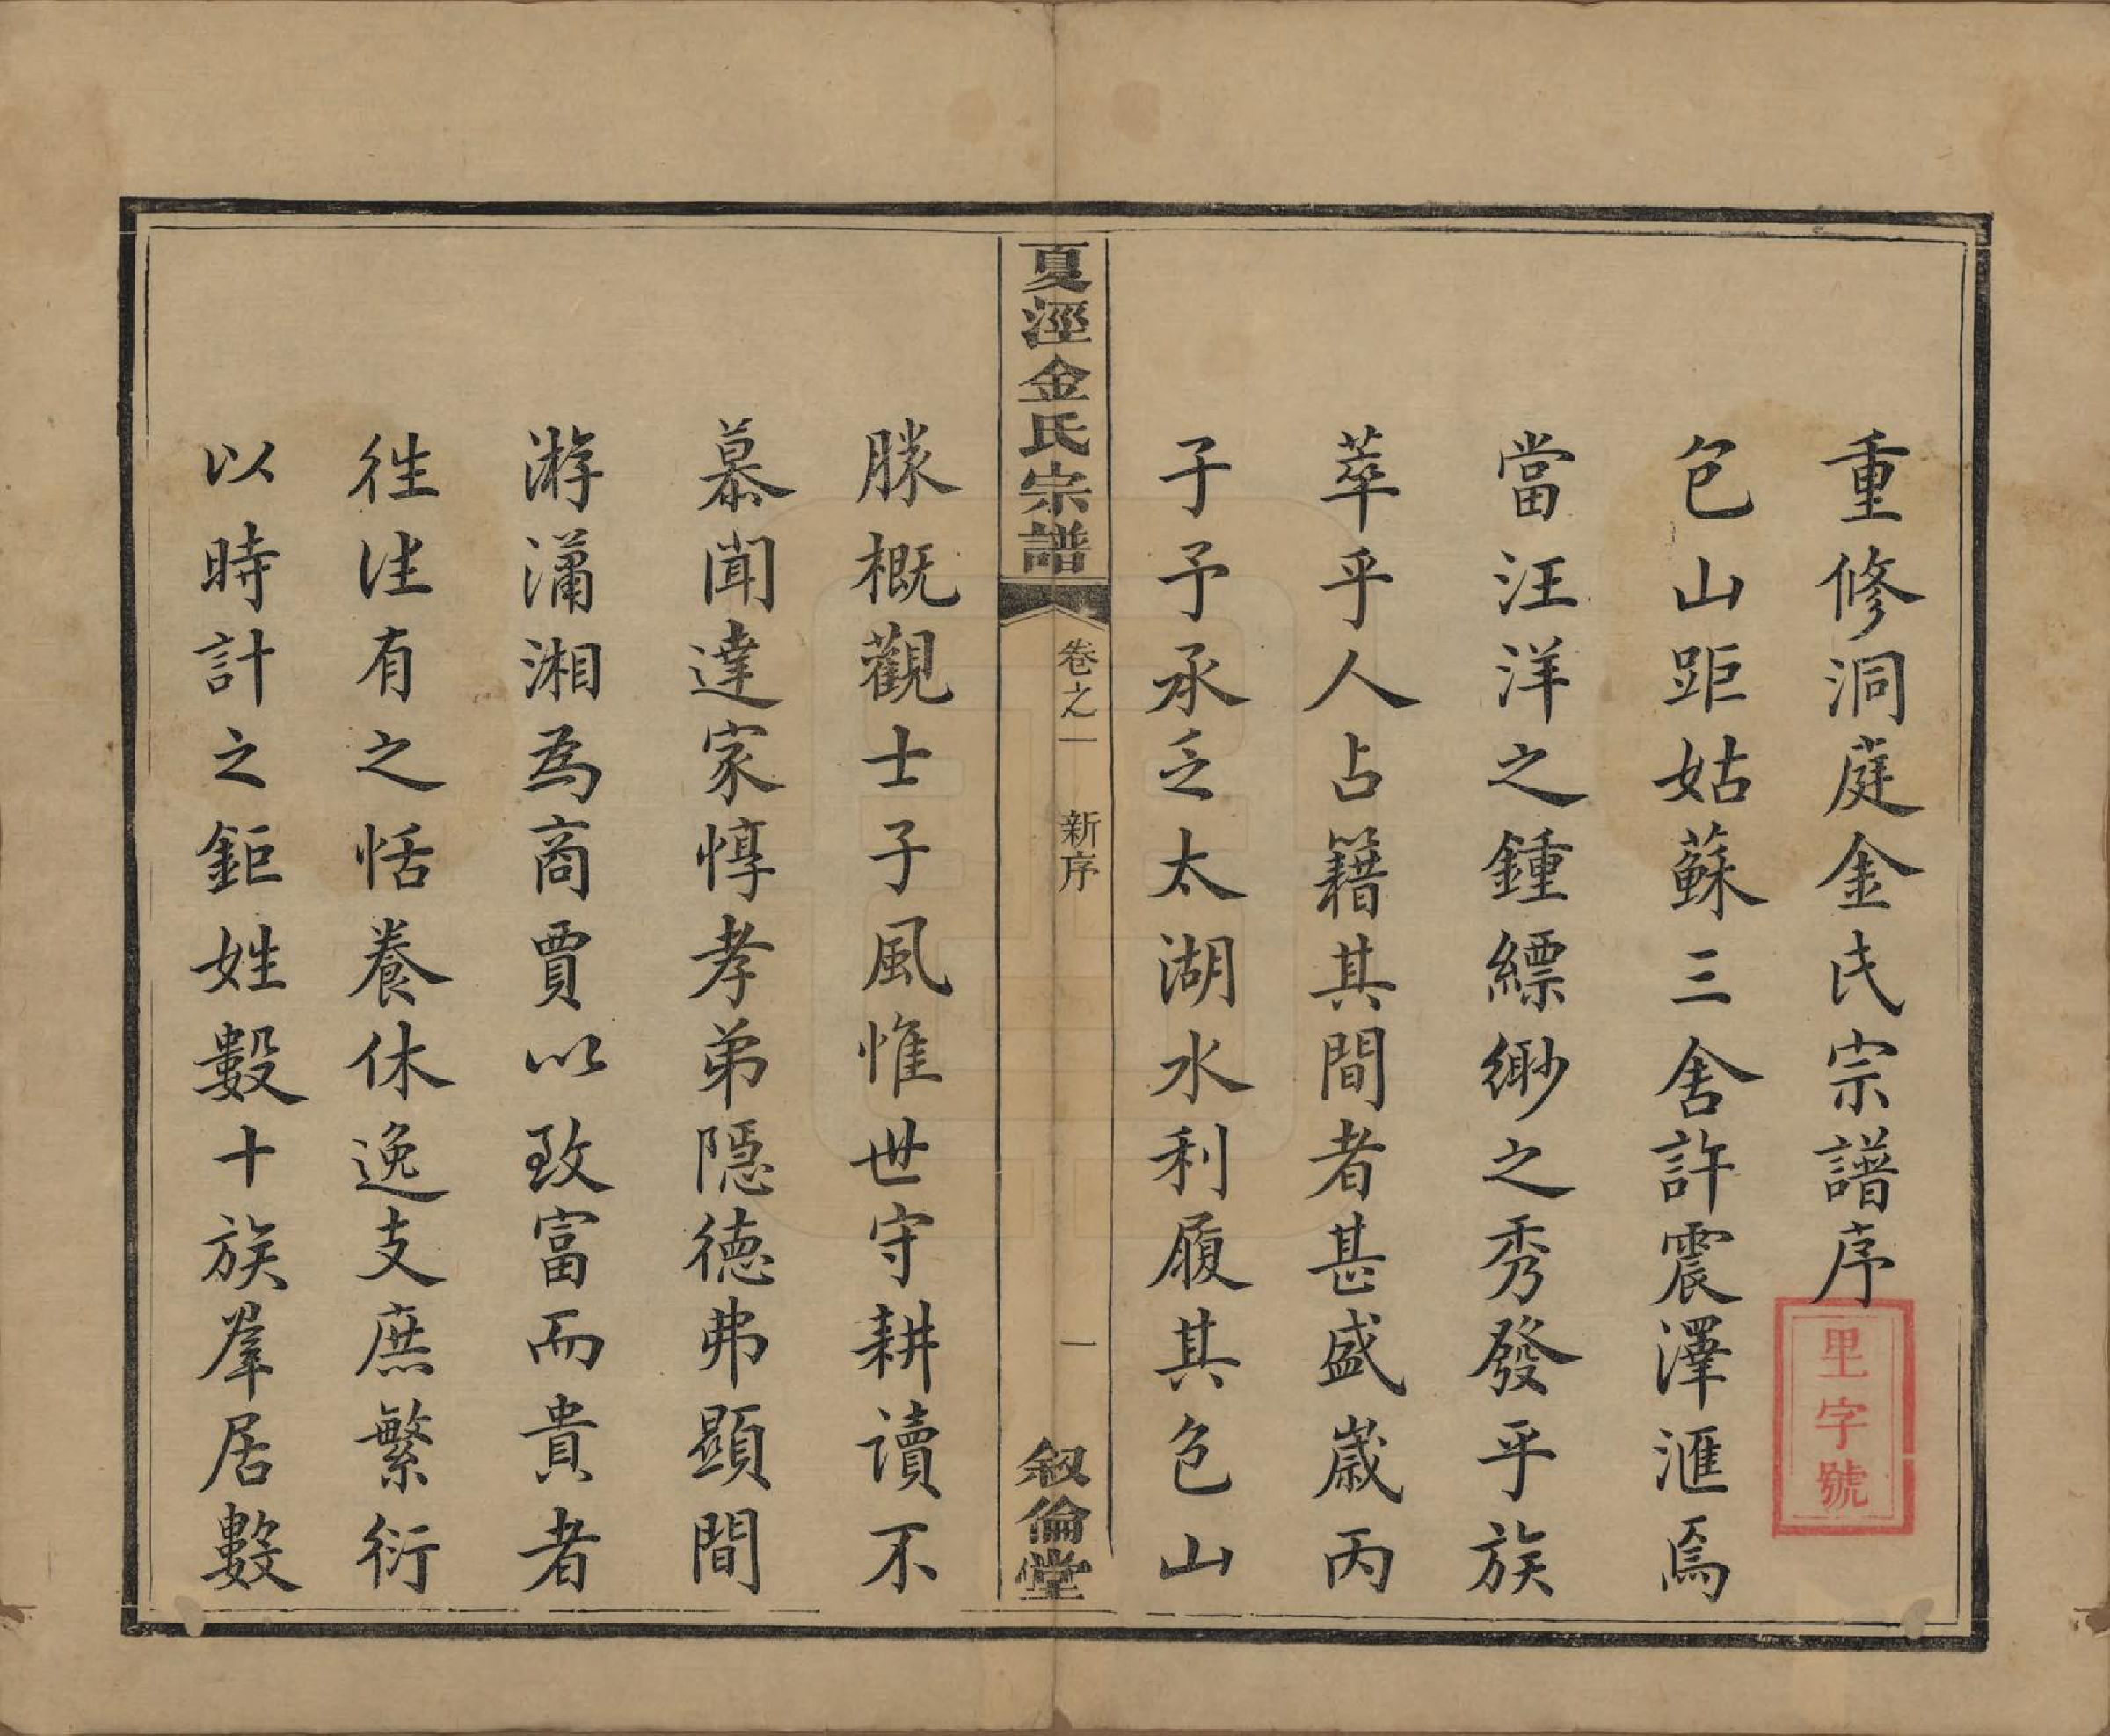 重修洞庭金氏宗譜序
里字號
包山距姑蘇三舍許震澤滙焉
當汪洋之鍾縹緲之秀發乎族
萃乎人占籍其間者甚盛歲丙
子予承乏太湖水利履其包山
夏涇金氏宗譜
卷之一
新序
一
敘倫堂
勝概觀士子風惟世守耕讀不
慕聞達家惇孝弟隱德弗顯間
游瀟湘爲商賈以致富而貴者
往往有之恬養休逸支庶繁衍
以時計之鉅姓數十族羣居數